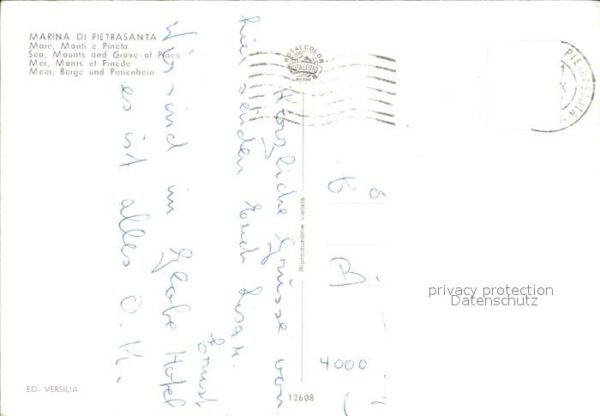 MARINA DI PIETRASANTA
Mare, Monti e Pineta
Sea, Mounts and Grove of Pines
Mer, Monts et Pinède
Meer, Berge und Pinienhein
ROTALCOLOR
ROTALFOTO
PIETRASANTA
Herzliche Grüsse von
hier senden Euch Lisa u.
Ernst
Wir sind im Globe Hotel
es ist alles O.K.
Riproduzione vietata
4000
privacy protection
Datenschutz
ED. VERSILIA
12608